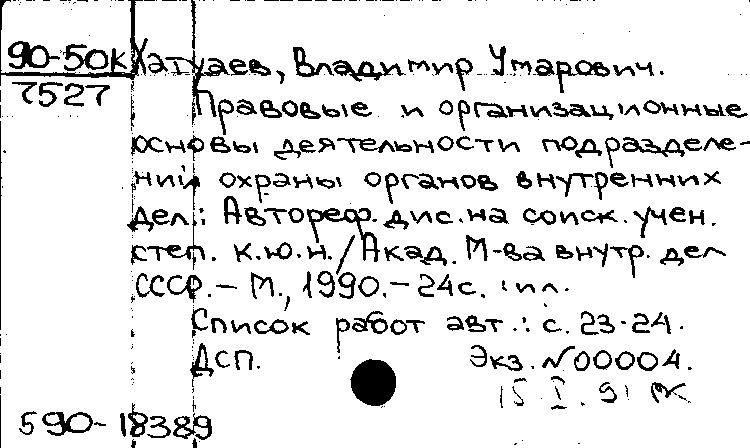 90-50К Хатуаев, Владимир Умарович.
7527
Правовые и организационные
основы деятельности подразделе-
ний охраны органов внутренних
дел.: Автореф. дис. на соиск. учен.
степ. к.ю.н. / Акад. М-ва внутр. дел
СССР. – М., 1990. – 24с. : ил.
Список работ авт.: с. 23-24.
ДСП. Экз. №00004.
15.I.91
590-18389